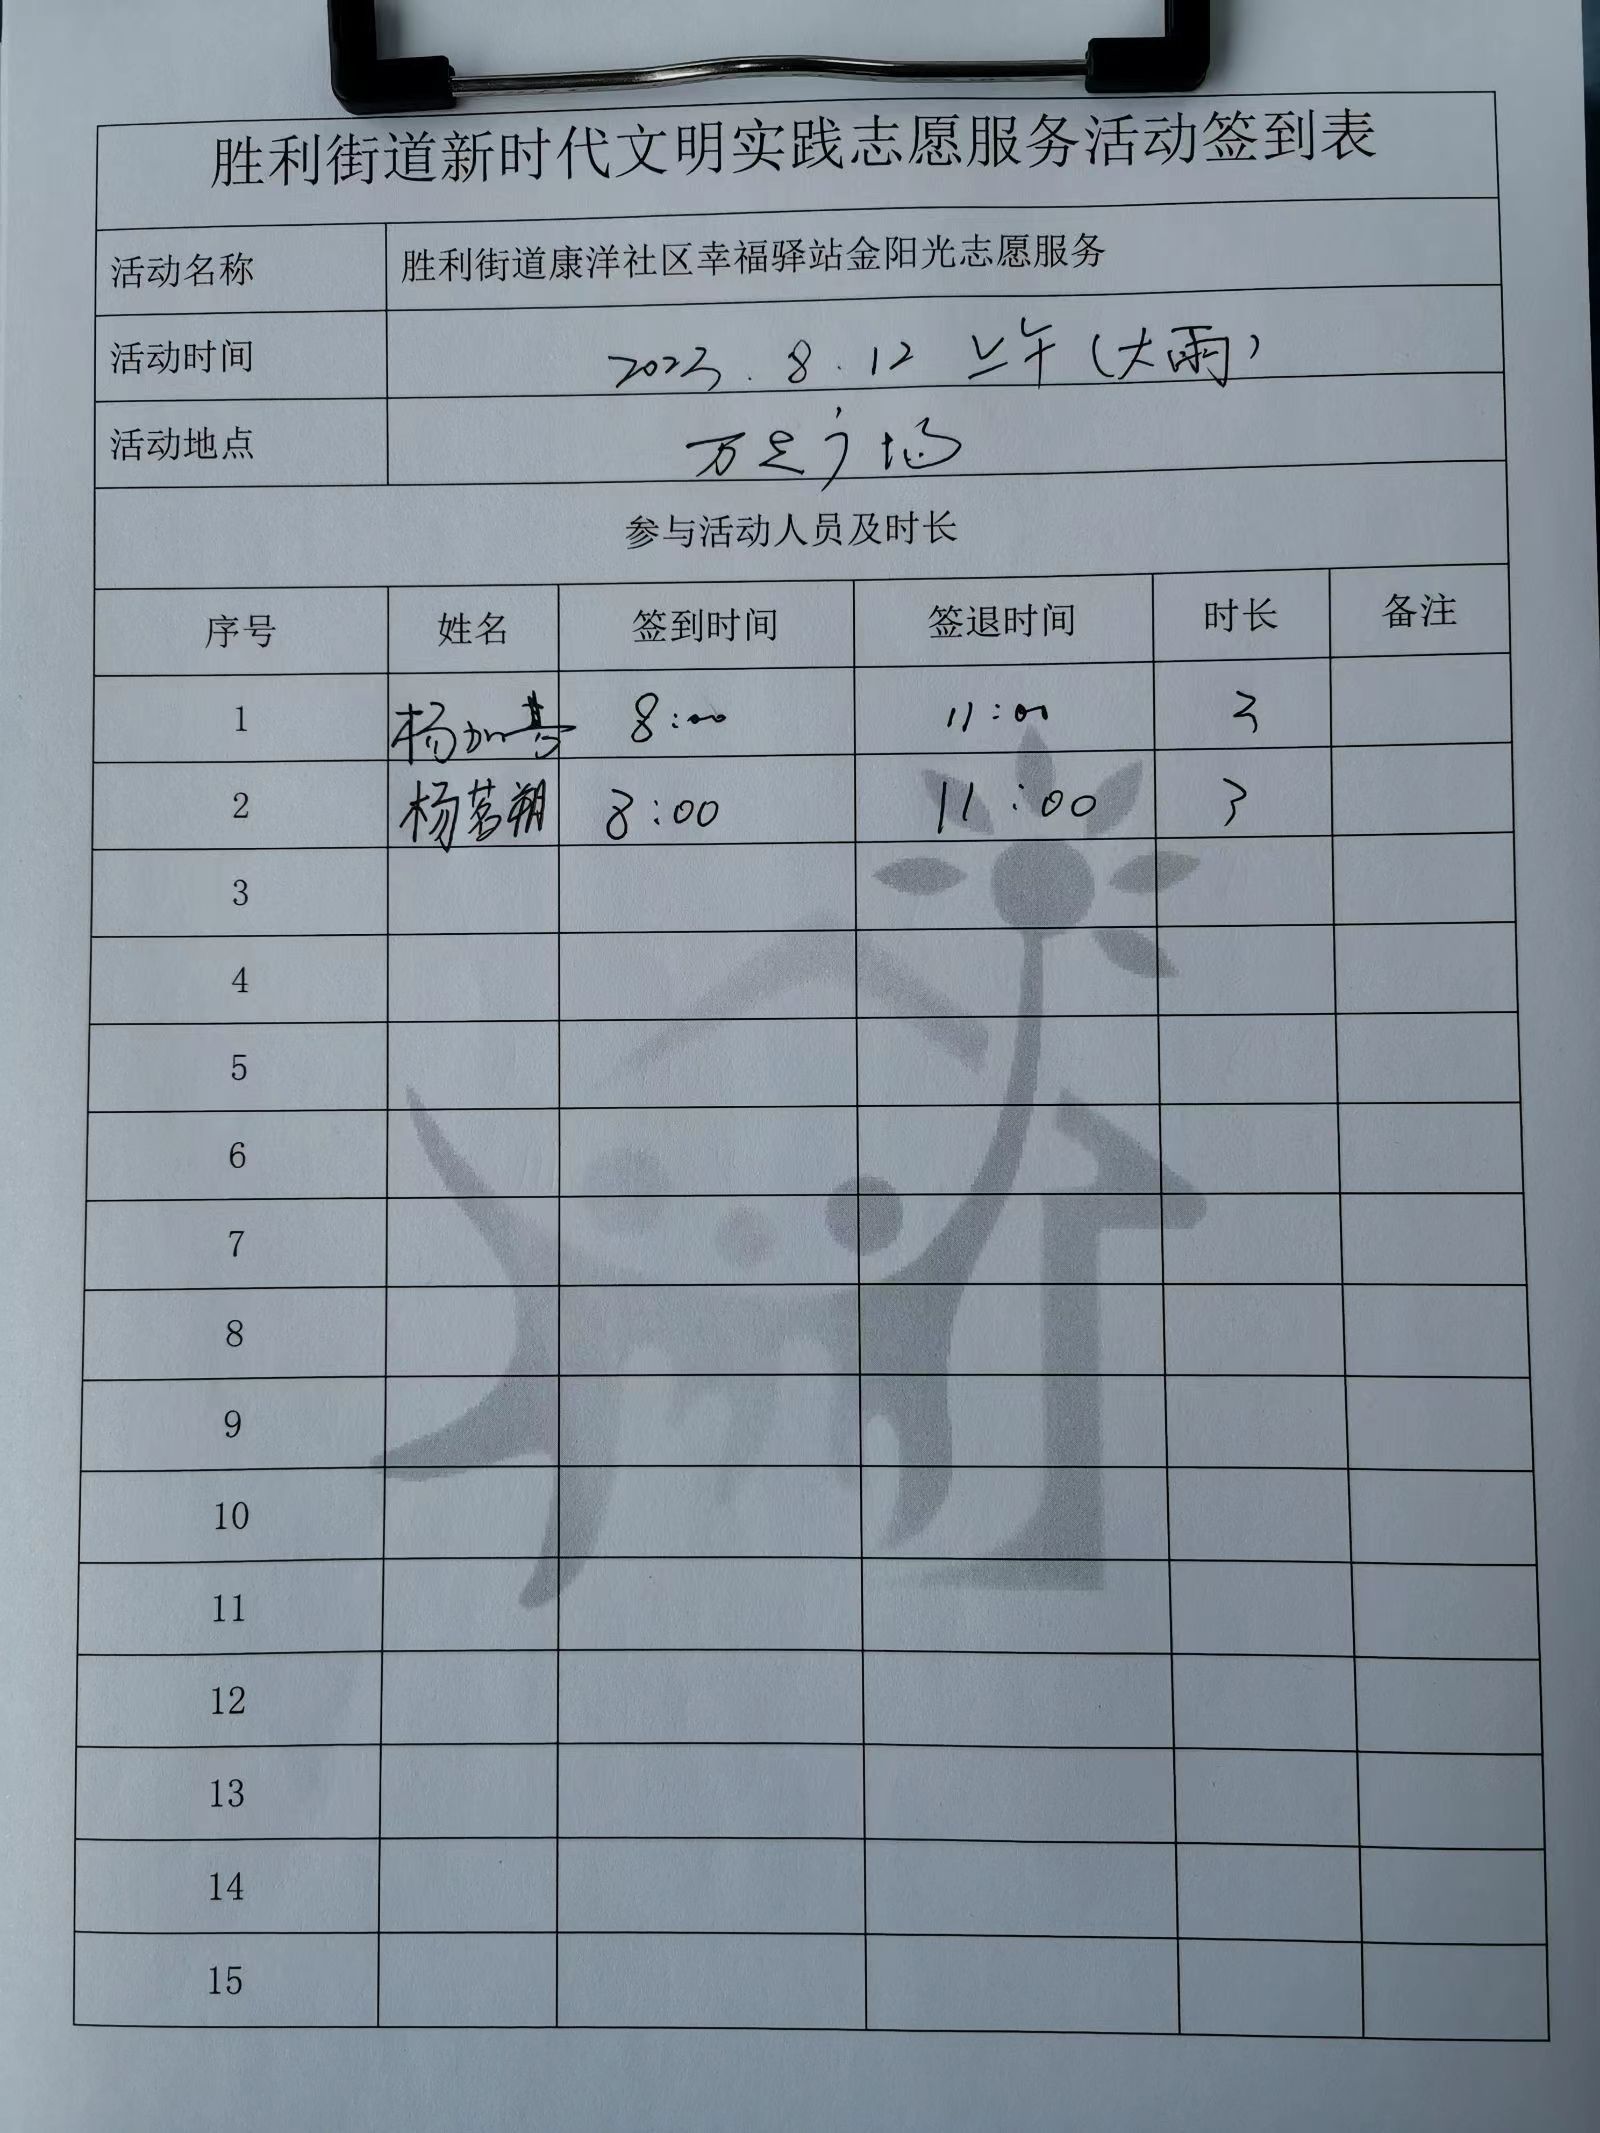 胜利街道新时代文明实践志愿服务活动签到表
活动名称 胜利街道康洋社区幸福驿站金阳光志愿服务
活动时间 2023.8.12 上午(大雨)
活动地点 万达广场
参与活动人员及时长
序号 姓名 签到时间 签退时间 时长 备注
1 杨 8:00 11:00 3
2 杨茗朔 8:00 11:00 3
3
4
5
6
7
8
9
10
11
12
13
14
15